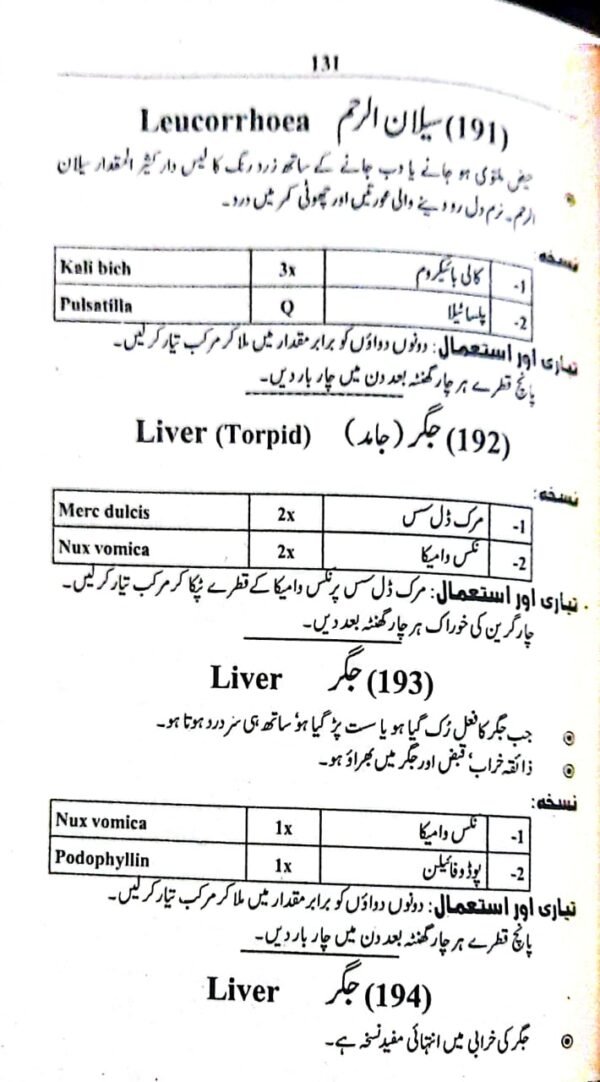 131
(191) سیلان الرحم Leucorrhoea
حیض ملتوی ہو جانے یا دب جانے کے ساتھ زرد رنگ کا لیس دار کثیر المقدار سیلان
الرحم۔ نرم دل رو دینے والی عورتیں اور چھوٹی کمر میں درد۔
نسخہ:
1- کالی بائیکروم 3x Kali bich
2- پلساٹیلا Q Pulsatilla
تیاری اور استعمال: دونوں دواؤں کو برابر مقدار میں ملا کر مرکب تیار کر لیں۔
پانچ قطرے ہر چار گھنٹہ بعد دن میں چار بار دیں۔
(192) جگر (جامد) Liver (Torpid)
نسخہ:
1- مرک ڈل سس 2x Merc dulcis
2- نکس وامیکا 2x Nux vomica
تیاری اور استعمال: مرک ڈل سس پر نکس وامیکا کے قطرے ٹپکا کر مرکب تیار کر لیں۔
چار گرین کی خوراک ہر چار گھنٹہ بعد دیں۔
(193) جگر Liver
جب جگر کا فعل رُک گیا ہو یا ست پڑ گیا ہو‘ ساتھ ہی سر درد ہوتا ہو۔
ذائقہ خراب‘ قبض اور جگر میں بھراؤ ہو۔
نسخہ:
1- نکس وامیکا 1x Nux vomica
2- پوڈوفائیلن 1x Podophyllin
تیاری اور استعمال: دونوں دواؤں کو برابر مقدار میں ملا کر مرکب تیار کر لیں۔
پانچ قطرے ہر چار گھنٹہ بعد دن میں چار بار دیں۔
(194) جگر Liver
جگر کی خرابی میں انتہائی مفید نسخہ ہے۔